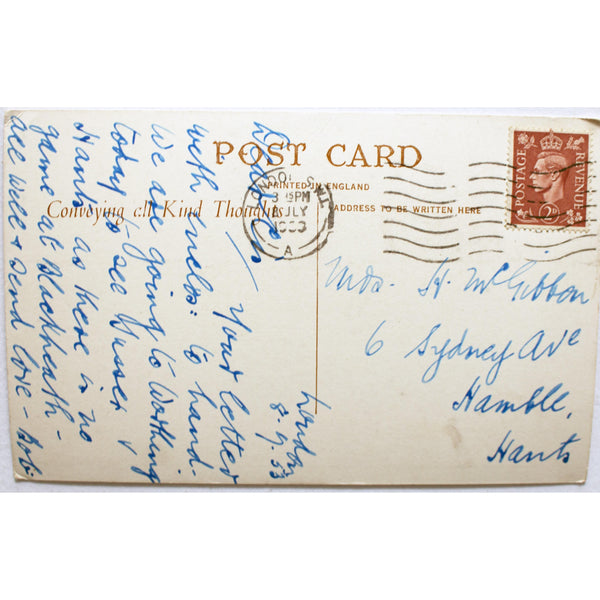 POST CARD
PRINTED IN ENGLAND
Conveying all Kind Thoughts
ADDRESS TO BE WRITTEN HERE
POSTAGE
REVENUE
2D
LONDON S.W.1
3 15PM
8 JLY
1953
A
Mrs. H. McGibbon
6 Sydney Ave
Hamble,
Hants
London
8.7.53
Your letter
with enclos: to hand.
We are going to Worthing
today to see &
Hans as there is no
game at Blackheath -
all well & send love - Bob